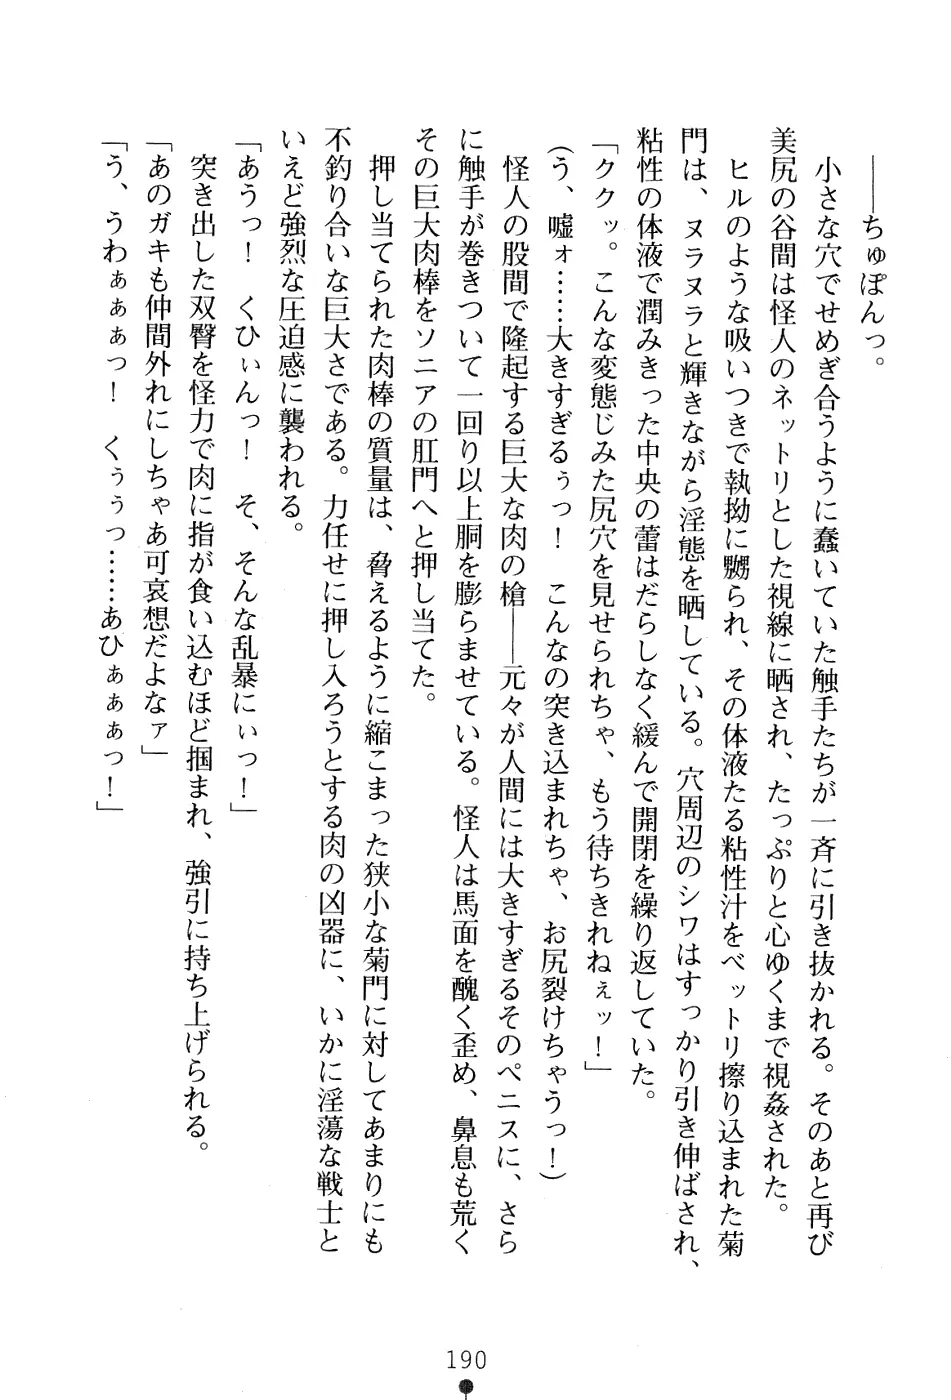 ――ちゅぽんっ。
小さな穴でせめぎ合うように蠢いていた触手たちが一斉に引き抜かれる。そのあと再び
美尻の谷間は怪人のネットリとした視線に晒され、たっぷりと心ゆくまで視姦された。
ヒルのような吸いつきで執拗に嬲られ、その体液たる粘性汁をベットリ擦り込まれた菊
門は、ヌラヌラと輝きながら淫態を晒している。穴周辺のシワはすっかり引き伸ばされ、
粘性の体液で潤みきった中央の蕾はだらしなく緩んで開閉を繰り返していた。
「ククッ。こんな変態じみた尻穴を見せられちゃ、もう待ちきれねぇッ！」
（う、嘘ォ……大きすぎるぅっ！　こんなの突き込まれちゃ、お尻裂けちゃうっ！）
怪人の股間で隆起する巨大な肉の槍――元々が人間には大きすぎるそのペニスに、さら
に触手が巻きついて一回り以上胴を膨らませている。怪人は馬面を醜く歪め、鼻息も荒く
その巨大肉棒をソニアの肛門へと押し当てた。
押し当てられた肉棒の質量は、脅えるように縮こまった狭小な菊門に対してあまりにも
不釣り合いな巨大さである。力任せに押し入ろうとする肉の凶器に、いかに淫蕩な戦士と
いえど強烈な圧迫感に襲われる。
「あうっ！　くひぃんっ！　そ、そんな乱暴にぃっ！」
突き出した双臀を怪力で肉に指が食い込むほど掴まれ、強引に持ち上げられる。
「あのガキも仲間外れにしちゃあ可哀想だよなァ」
「う、うわぁぁぁっ！　くぅぅっ……あひぁぁぁっ！」
190